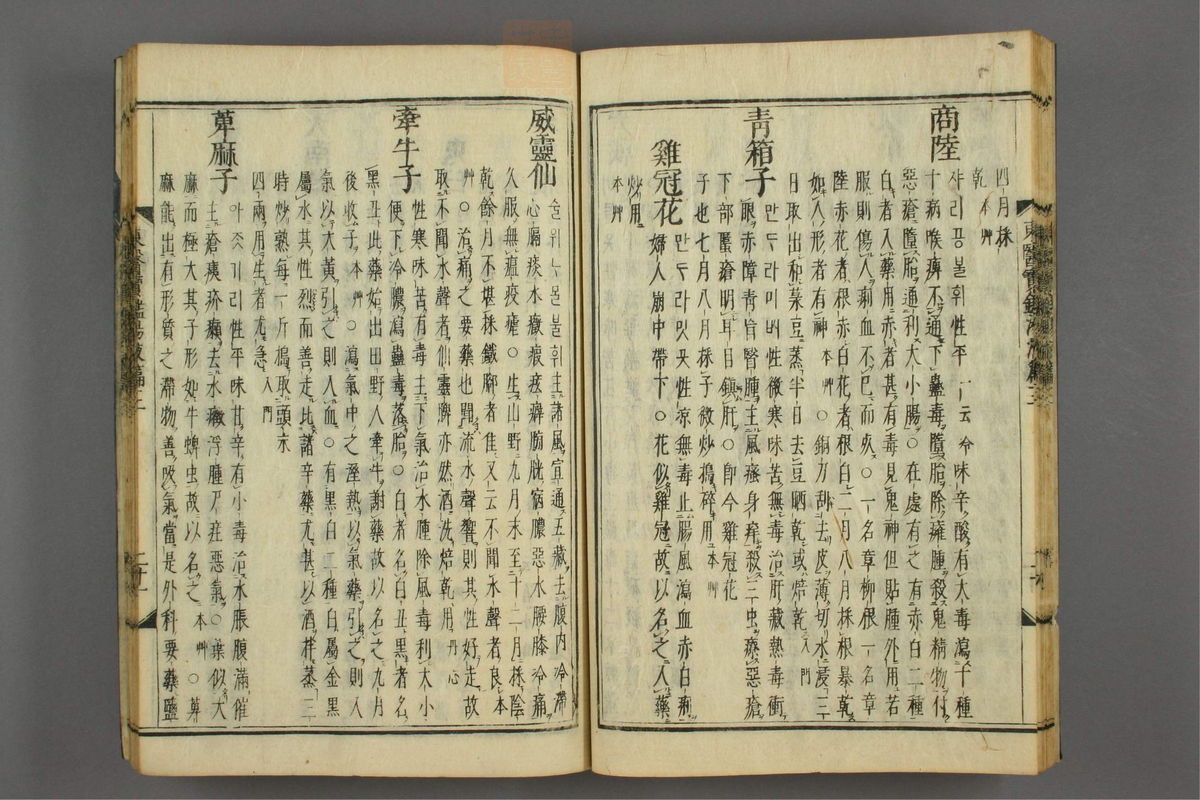 四月採
乾 本艸
商陸 쟈리공불휘性平一云冷味辛酸有大毒瀉十種
水病喉痹不通下蠱毒墮胎除癰腫殺鬼精物付
惡瘡墮胎通利大小腸○在處有之有赤白二種
白者入藥用赤者甚有毒見鬼神但貼腫外用若
服則傷人痢血不已而死○一名章柳根一名章
陸赤花者根赤白花者根白二月八月採根暴乾
如人形者有神 本艸○銅刀刮去皮薄切水浸三
日取出和菉豆蒸半日去豆晒乾或焙乾 入門
靑箱子 만드라미씨性微寒味苦無毒治肝藏熱毒衝
眼赤障靑盲瞖腫主風瘙身痒殺三虫療惡瘡
下部䘌瘡明耳目鎭肝○卽今雞冠花
子也七月八月採子微炒搗碎用 本艸
雞冠花 만드라밋곳性凉無毒止腸風瀉血赤白痢
婦人崩中帶下○花似雞冠故以名之入藥
炒用
本艸
東醫寶鑑湯液篇三
威靈仙 술위ᄂᆞ물불휘主諸風宣通五藏去腹內冷滯
心膈痰水癥瘕痃癖膀胱宿膿惡水腰膝冷痛
久服無瘟疫瘧○生山野九月末至十二月採陰
乾餘月不堪採鐵脚者佳又云不聞水聲者良 本
艸○治痛之要藥也聞流水聲響則其性好走故
取不聞水聲者仙靈脾亦然酒洗焙乾用 丹心
牽牛子 性寒味苦有毒主下氣治水腫除風毒利大小
便下冷膿瀉蠱毒落胎○白者名白丑黑者名
黑丑此藥始出田野人牽牛謝藥故以名之九月
後收子 本艸○瀉氣中之溼熱以氣藥引之則入
氣以大黃引之則入血○有黑白二種白屬金黑
屬水其性烈而善走比諸辛藥尤甚以酒拌蒸三
時炒熟每一斤搗取頭末
四兩用生者尤急 入門
萆麻子 아ᄌᆞᆺ가리性平味甘辛有小毒治水脹腹滿催
生主瘡痍疥癩去水癥浮腫尸疰惡氣○葉似大
麻而極大其子形如牛蜱虫故以名之 本艸○萆
麻能出有形質之滯物善吸氣當是外科要藥鹽